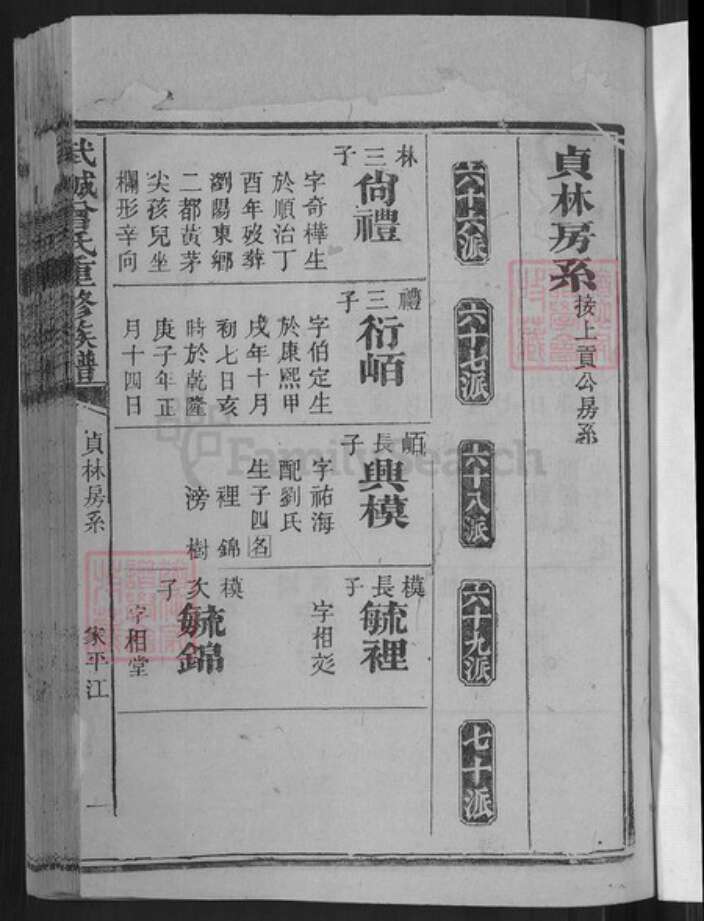 貞林房系 接上貢公房系
六十六派
六十七派
六十八派
六十九派
七十派
林三子
尙禮
字奇樺生
於順治丁
酉年歿葬
瀏陽東鄉
二都黃茅
尖孩兒坐
欄形辛向
禮三子
衍岶
字伯定生
於康熙甲
戌年十月
初七日亥
時於乾隆
庚子年正
月十四日
岶長子
興模
字祐海
配劉氏
生子四名
裡 錦
滂 樹
模長子
毓裡
字相
模次子
毓錦
字相堂
武城曾氏重修族譜
貞林房系
家平江
一
FamilySearch